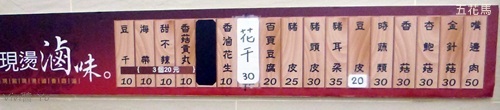 五花馬
現燙滷味。
豆干 10
海菜 10
甜不辣 10
香菇貢丸 10
(3個20元)
香滷花生 10
花干 30
百頁豆腐 20
豬皮 25
豬頭皮 25
豬耳朵 35
豆皮 20
時蔬類 30
香菇 30
杏鮑菇 30
金針菇 30
嘴邊肉 50